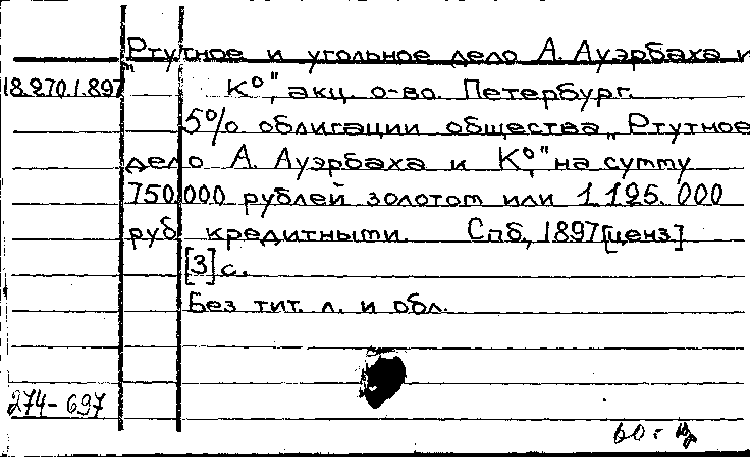 „Ртутное и угольное дело А. Ауэрбаха и
18.270.1.897 К°", акц. о-во. Петербург.
5% облигации общества „Ртутное
дело А. Ауэрбаха и К°" на сумму
750.000 рублей золотом или 1.125.000
руб. кредитными. Спб., 1897 [ценз]
[3] с.
Без тит. л. и обл.
274-697